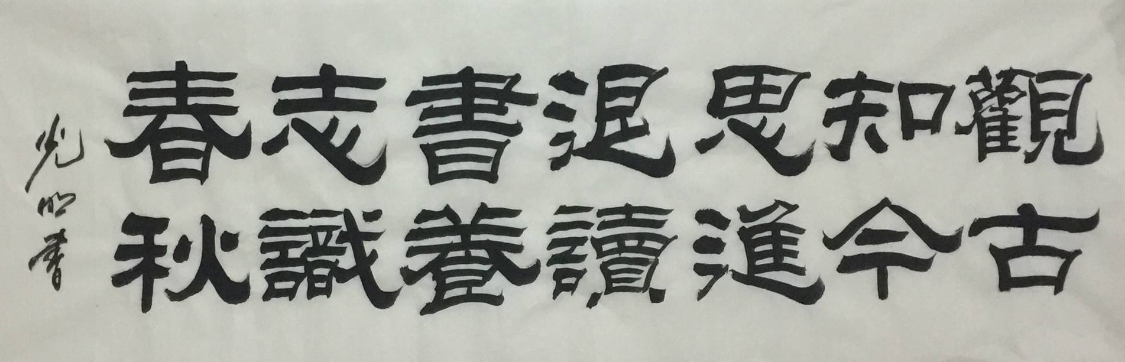 觀古
知今
思進
退讀
書養
志識
春秋
光明書